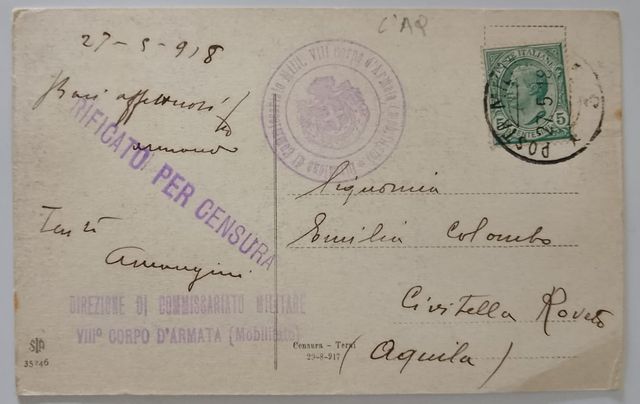 C'AQ
27-5-918
Baci affettuosi
Armando
VERIFICATO PER CENSURA
Armangini
DIREZIONE DI COMMISSARIATO MILITARE
VIIIº CORPO D'ARMATA (Mobilitato)
STA
35246
VIII Corpo d'Armata
POSTE ITALIANE
5
POSTA
Signorina
Emilia Colombo
Civitella Roveto
(Aquila)
Censura - Terni
29-8-917